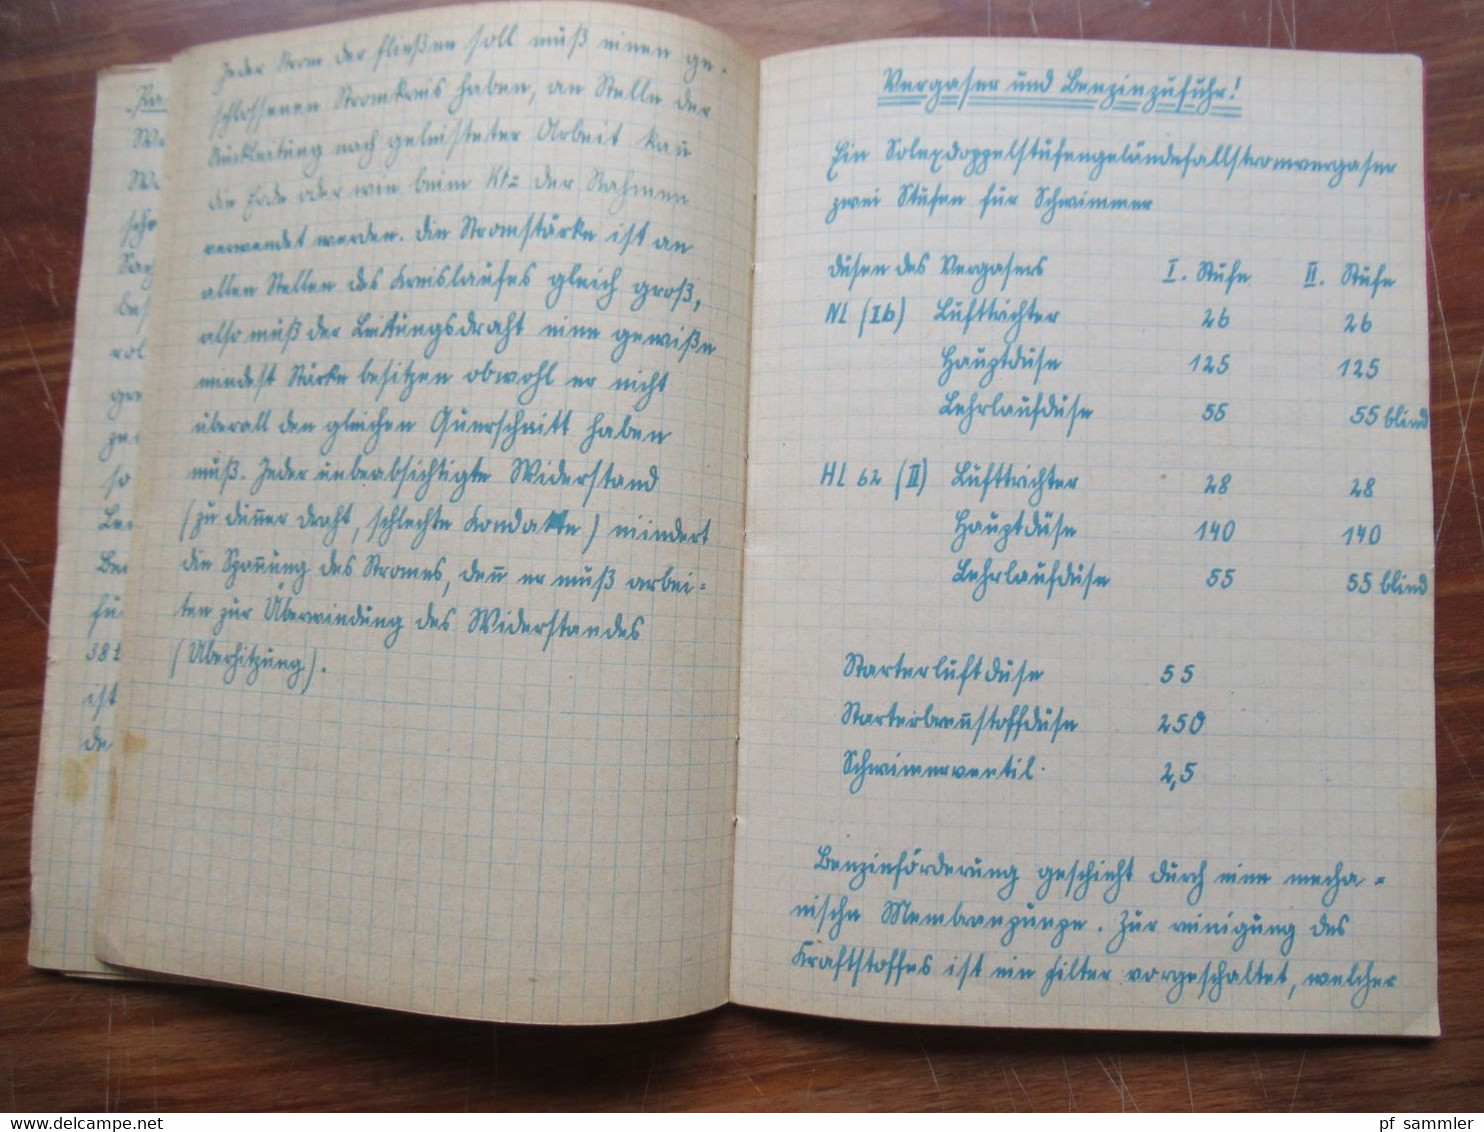 Jeder Strom der fließen soll muß einen ge-
schlossenen Stromkreis haben, an Stelle der
Rückleitung nach geleisteter Arbeit kan
die Erde oder wie beim Kfz der Rahmen
verwendet werden. Die Stromstärke ist an
allen Stellen des Kreislaufes gleich groß,
also muß der Leitungsdraht eine gewiße
mindest Stärke besitzen obwohl er nicht
überall den gleichen Querschnitt haben
muß. Jeder unbeabsichtigte Widerstand
(zu düner Draht, schlechte Kondakte) mindert
die Spanung des Stromes, den er muß arbei-
ten zur Überwindung des Widerstandes
(Überhitzung).
Vergaser und Benzinzufuhr!
Ein Solexdoppelstufengeländefallstromvergaser
zwei Stufen für Schwimmer
Düsen des Vergasers I. Stufe II. Stufe
NL (Ib) Lufttrichter 26 26
Hauptdüse 125 125
Lehrlaufdüse 55 55 blind
HL 62 (II) Lufttrichter 28 28
Hauptdüse 140 140
Lehrlaufdüse 55 55 blind
Starterluftdüse 55
Starterbrenstoffdüse 250
Schwimerventil 2,5
Benzinförderung geschieht durch eine mecha-
nische Membranpumpe. Zur reinigung des
Kraftstoffes ist ein Filter vorgeschaltet, welcher
38t
ist
so
delcampe.net
pf_sammler